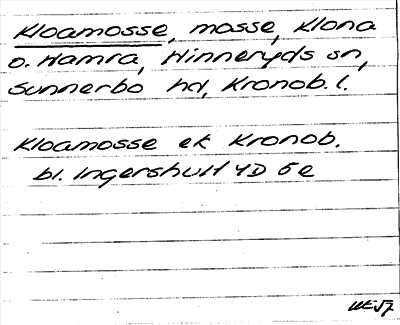 Kloamosse, mosse, Klona
o. Hamra, Hinneryds sn,
Sunnerbo hd, Kronob. l.
Kloamosse ek Kronob.
bl. Ingershult 4D 5e